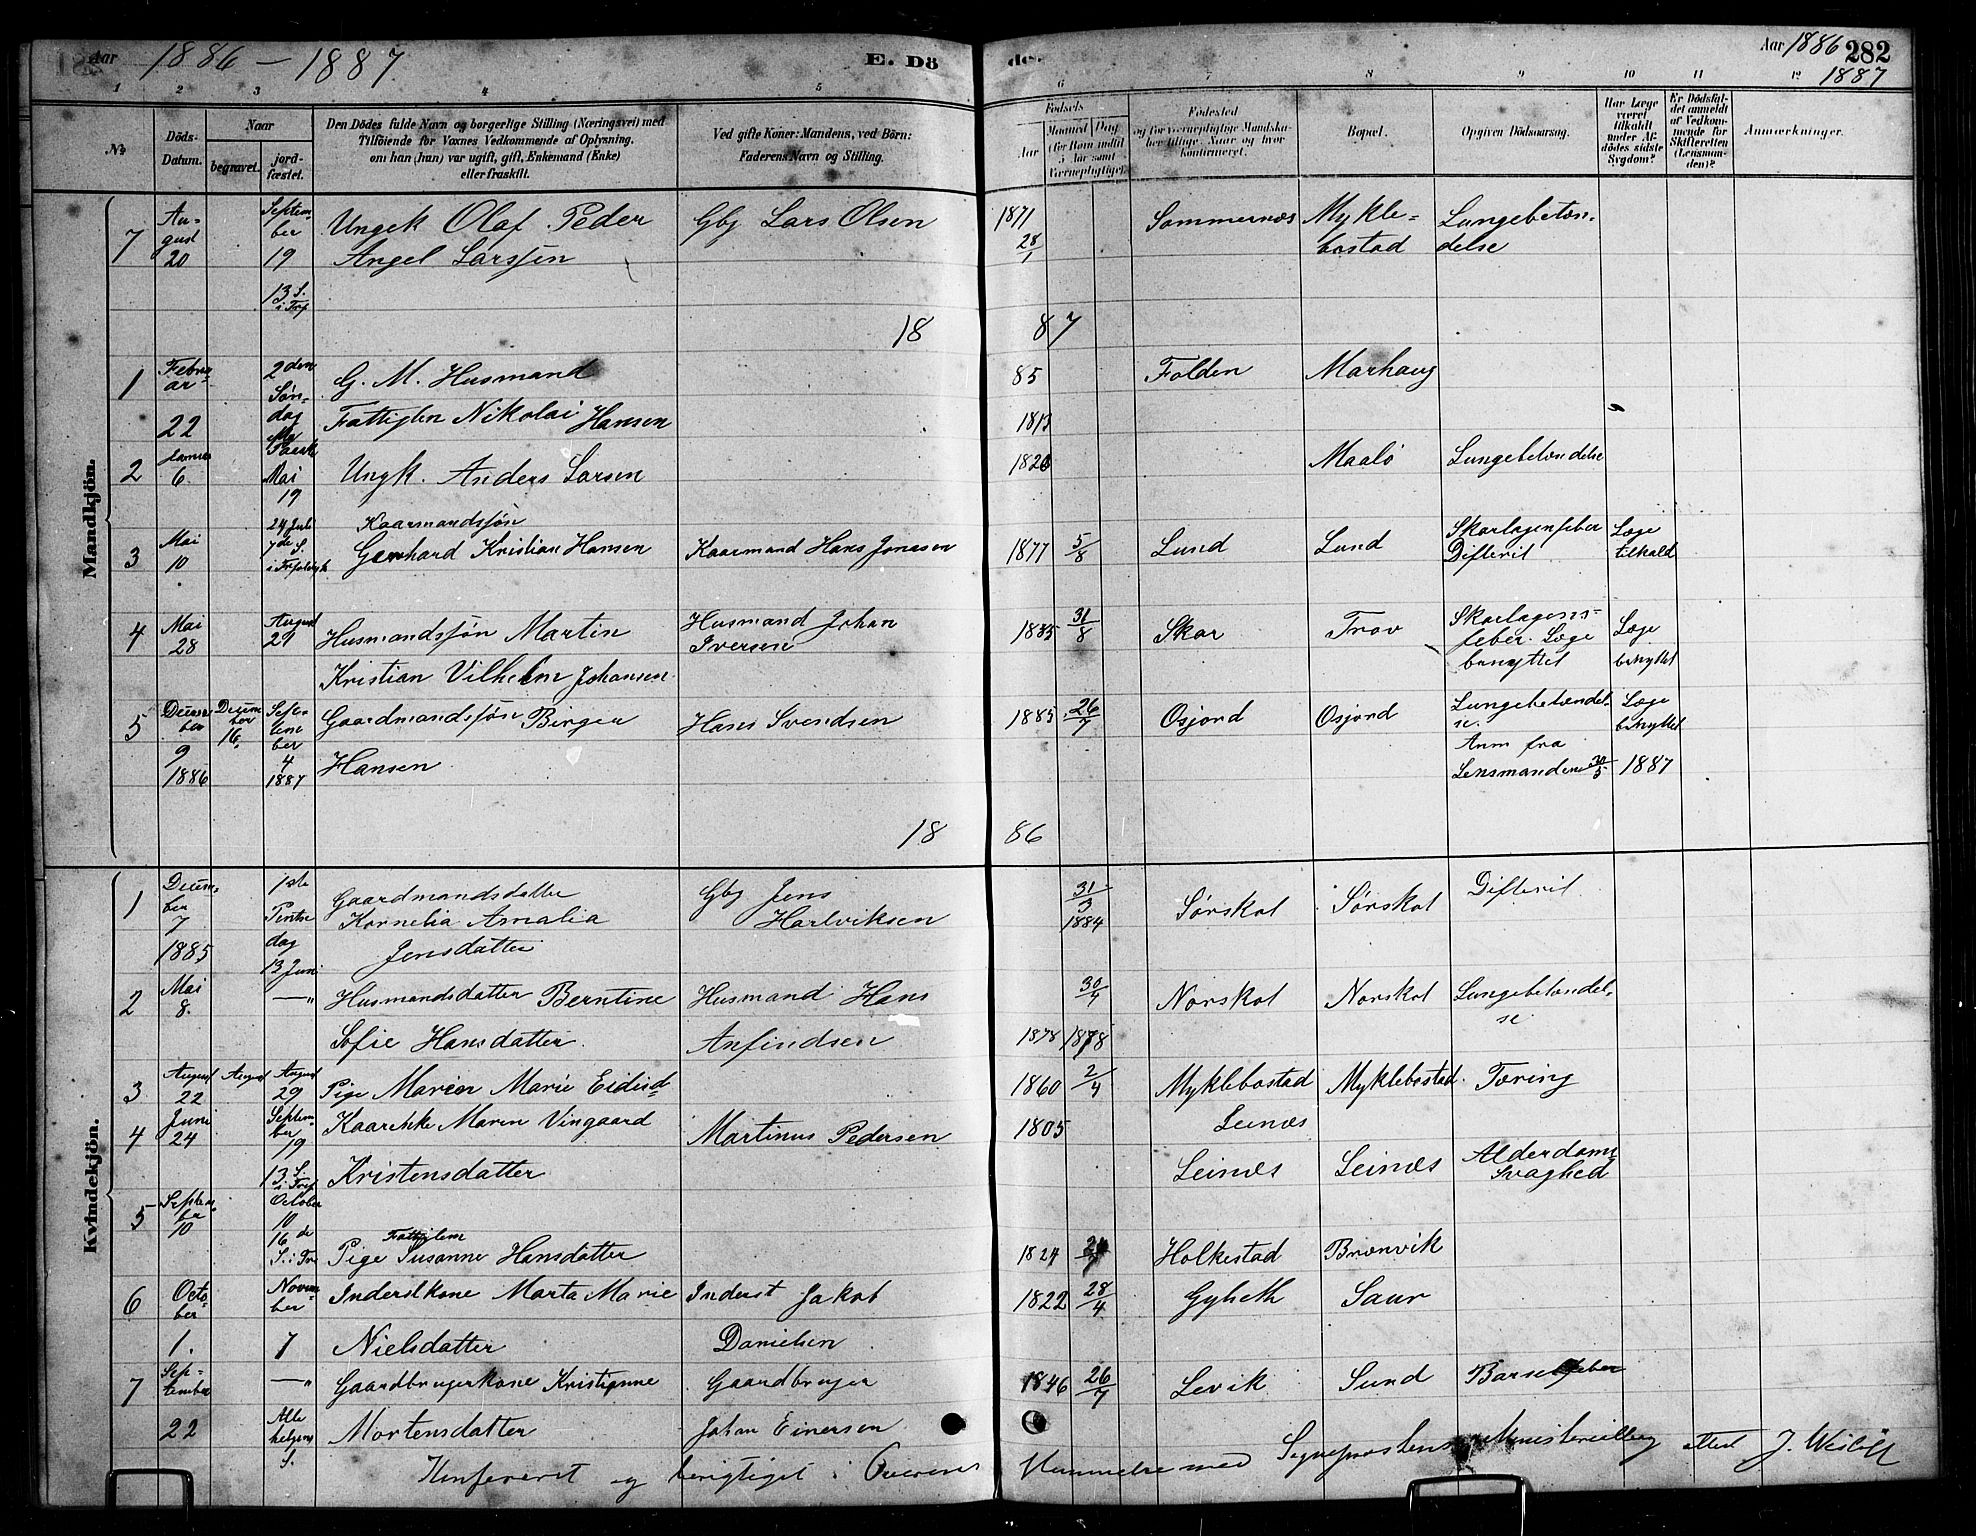 Aar 1886 – 1887 E. Dö
des. Aar 1886 282
1887
1 2 3 4 5 6 7 8 9 10 11 12
№
Döds-Datum.
Naar
begravet.
jordfæstet.
Den Dödes fulde Navn og borgerlige Stilling (Næringsvei) med
Tilföiende for Voxnes Vedkommende af Oplysning,
om han (hun) var ugift, gift, Enkemand (Enke)
eller fraskilt.
Ved gifte Koner: Mandens, ved Börn:
Faderens Navn og Stilling.
Fødsels
Aar
Maaned Dag
(for Børn indtil
5 Aar samt
Værnepligtige).
Fødested
og for værnepligtige Mandska-
ber tillige, Naar og hvor
konfirmeret.
Bopæl.
Opgiven Dödsaarsag.
Har Læge
været
tilkaldt
under Af-
dödes sidste
Sygdom?
Er Dödsfal-
det anmeldt
af Vedkom-
mende for
Skifteretten
(Lensman-
den)?
Anmærkninger.
Mandkjön.
7 August 20 September 19 Ungk Olaf Peder Gbg Lars Olsen 1871 28/1 Sommernæs Myklebostad Lungebetændelse
Angel Larssen
13 S. i Tref
18 87
1 Februar 22 2den Søndag G. M. Husmand 85 Folden Marhaug
Fattiglem Nikolai Hansen 1813
2 6 Mai 19 Ungk. Anders Larsen 1820 Maalö Lungebetændelse
3 Mai 10 24 Juli 7de S. Kaarmandssøn
Gerhard Kristian Hansen Kaarmand Hans Jonasen 1877 5/8 Lund Lund Skarlagenfeber Difterit Læge tilkald
4 Mai 28 August 29 Husmandssøn Martin Husmand Johan Iversen 1885 31/8 Skar Trøv Skarlagensfeber. Læge benyttet Læge benyttet
Kristian Vilhelm Johansen
5 December 9 1886 December 16. September 4 1887 Gaardmandssøn Birger Hans Svendsen 1885 26/7 Osjord Osjord Lungebetændelse. Læge benyttet
Hansen
Anm fra
Lensmanden 30/5 1887
18 86
Kvindekjön.
1 December 7 1885 1ste Pintsedag 13 Juni Gaardmandsdatter Gbg Jens 31/3 1884 Sørskot Sørskot Difterit
Kornelia Amalia Hartviksen
Jensdatter
2 Mai 8. —"— Husmandsdatter Berntine Husmand Hans 30/4 Norskot Norskot Lungebetændelse
Sofie Hansdatter. Anfindsen 1878 1878
3 August 22 August August 29 Pige Maren Marie Eidisd 1860 2/4 Myklebostad Myklebostad. Tæring
4 Juni 24 September 19 Maren Vingaard Martinus Pedersen 1805 Leines
13 S. i Tref Kristensdatter Leinæs Leinæs Alderdoms Svaghed
5 September 10 October 10 16de S. i Tr Fattiglem
Pige Susanne Hansdatter 1824 Holkestad Brenvik
6 October 1. November 7 Inderstkone Marta Marie Inderst Jakob 1822 28/4 Gylseth Saur
Nielsdatter Danielsen
7 September 22 —"— Gaardbrugerkone Kristianne Gaardbruger 1846 26/7 Levik Sund Barselfeber
Alle helgens S. Mortensdatter Johan Einersen
Konfereret og berigtiget i Overens stemmelse med Sognepræstens Ministerialbog attest J.